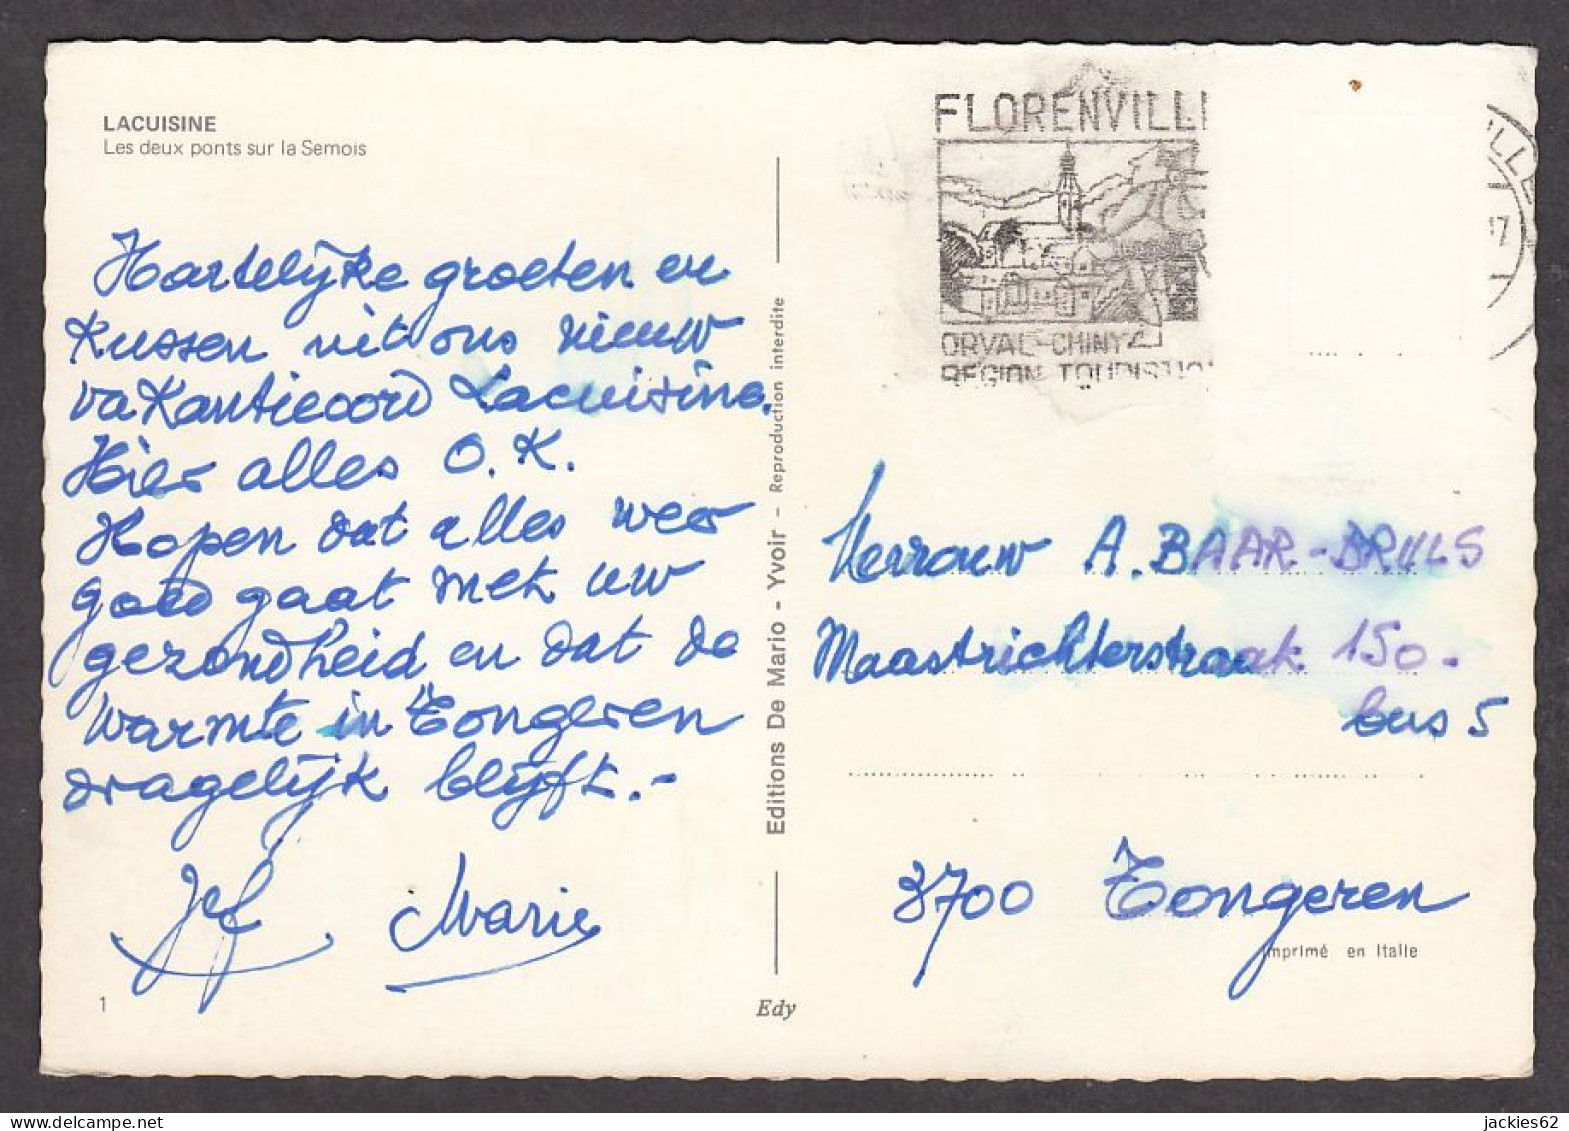 LACUISINE
Les deux ponts sur la Semois
Hartelijke groeten en
Kussen uit ons nieuw
vaKantieoord Lacuisine.
Hier alles O.K.
Hopen dat alles weer
goed gaat met uw
gezondheid en dat de
warmte in Tongeren
dragelijk blijft.-
Jef Marie
1
Editions De Mario - Yvoir - Reproduction interdite
Edy
FLORENVILL
ORVAL-CHINY
REGION TOURISTIQ
ILLE
17
Mevrouw A. BAAR-BRULS
Maastrichterstraat 150.
bus 5
3700 Tongeren
Imprimé en Italie
jackies62